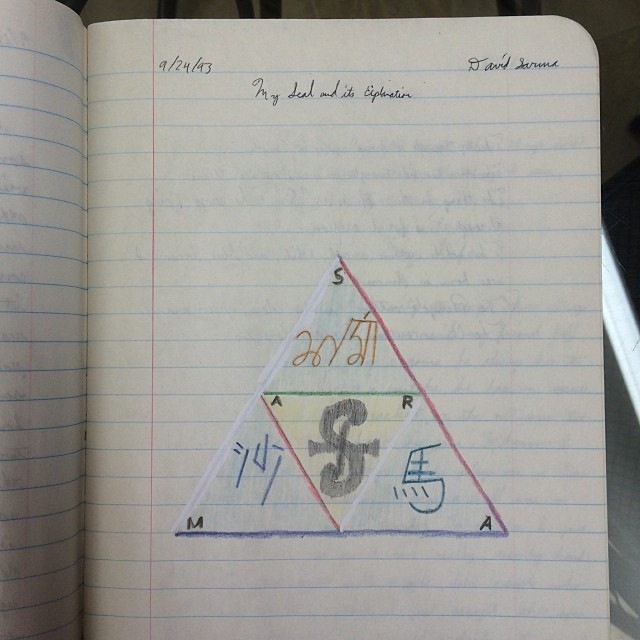 9/24/93 David Sarma
My Seal and its Explanation
S
A R
沙 馬
M A